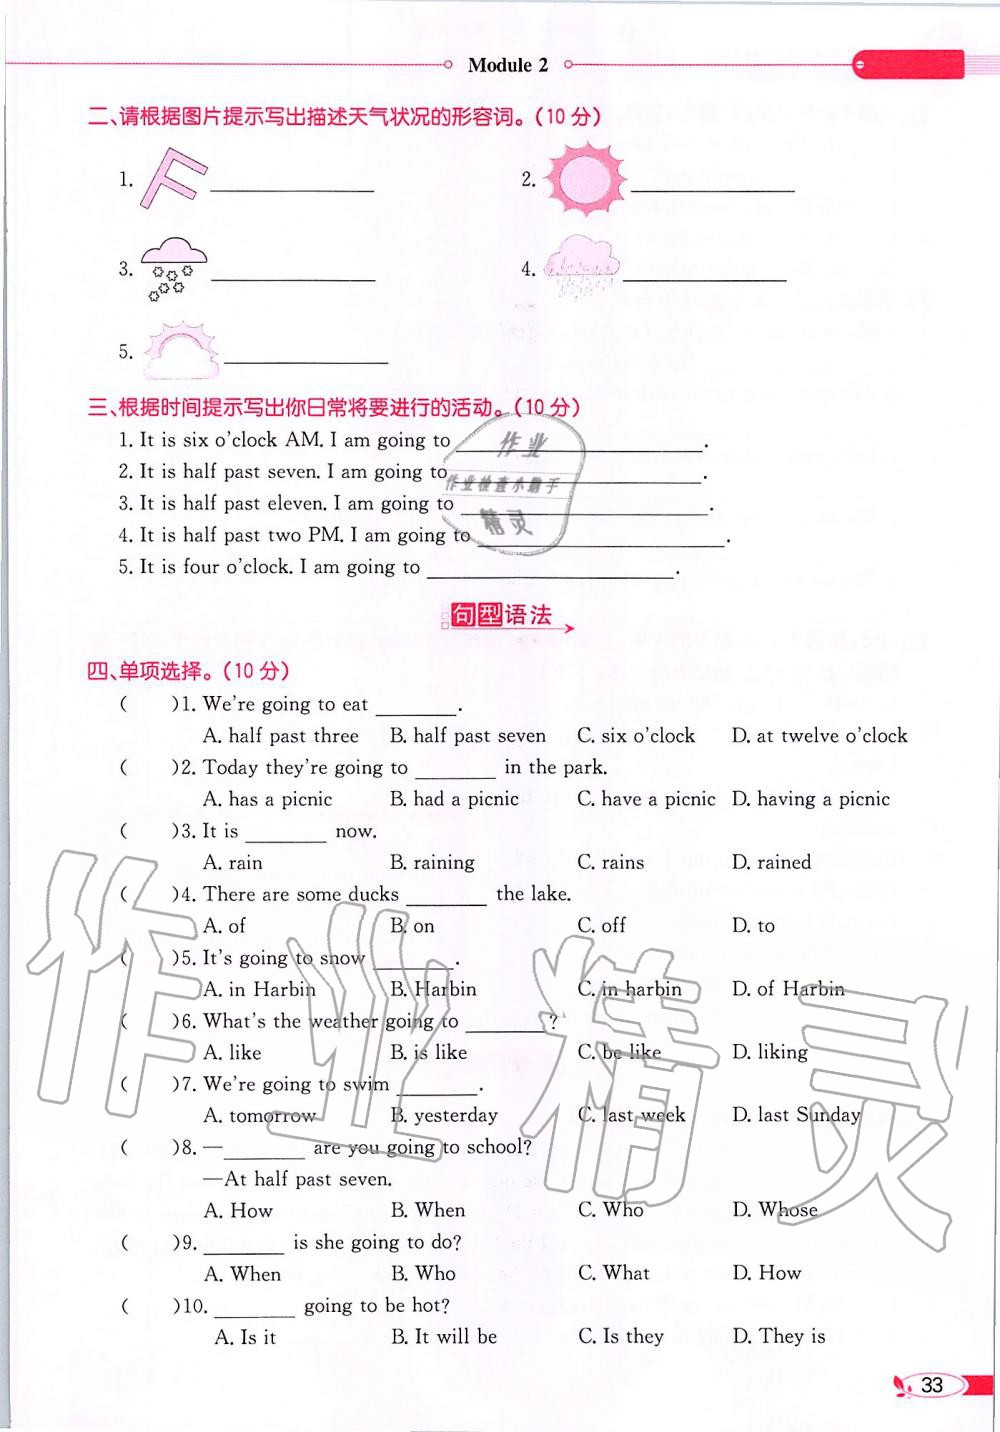 Module 2
二、请根据图片提示写出描述天气状况的形容词。(10 分)
1. ________ 2. ________
3. ________ 4. ________
5. ________
三、根据时间提示写出你日常将要进行的活动。(10 分)
1. It is six o'clock AM. I am going to ________.
2. It is half past seven. I am going to ________.
3. It is half past eleven. I am going to ________.
4. It is half past two PM. I am going to ________.
5. It is four o'clock. I am going to ________.
作业
作业检查小助手
精灵
句型语法
四、单项选择。(10 分)
( )1. We're going to eat ________.
A. half past three B. half past seven C. six o'clock D. at twelve o'clock
( )2. Today they're going to ________ in the park.
A. has a picnic B. had a picnic C. have a picnic D. having a picnic
( )3. It is ________ now.
A. rain B. raining C. rains D. rained
( )4. There are some ducks ________ the lake.
A. of B. on C. off D. to
( )5. It's going to snow ________.
A. in Harbin B. Harbin C. in harbin D. of Harbin
( )6. What's the weather going to ________?
A. like B. is like C. be like D. liking
( )7. We're going to swim ________.
A. tomorrow B. yesterday C. last week D. last Sunday
( )8. —________ are you going to school?
—At half past seven.
A. How B. When C. Who D. Whose
( )9. ________ is she going to do?
A. When B. Who C. What D. How
( )10. ________ going to be hot?
A. Is it B. It will be C. Is they D. They is
作业精灵
33